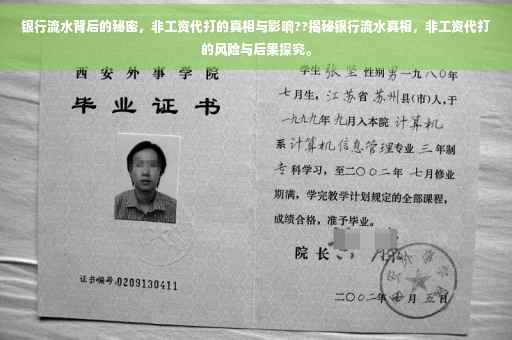 银行流水背后的秘密，非工资代打的真相与影响??揭秘银行流水真相，非工资代打
的风险与后果探究。
西安外事学院
毕业证书
证书编号:0209130411
学生 张坚 性别 男 一九八〇年
七月生，江苏省苏州县(市)人，于
一九九九年九月入本院 计算机
系 计算机信息管理 专业 三 年制
专科学习，至二〇〇二年 七月修业
期满，学完教学计划规定的全部课程，
成绩合格，准予毕业。
院长
二〇〇二年 月五日